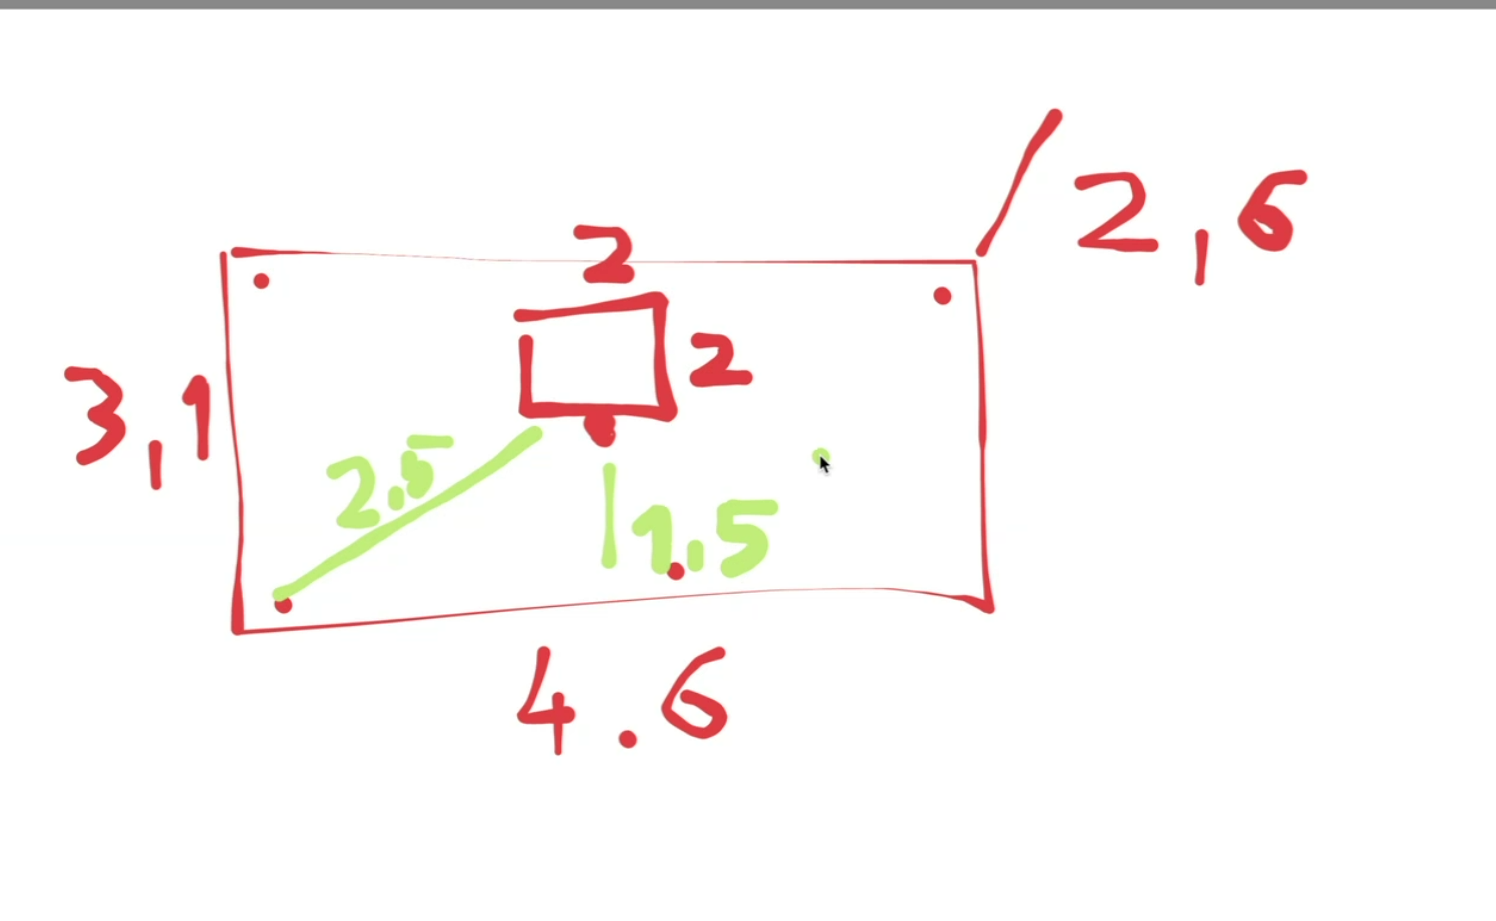 2,6
2
2
3,1
2.5
1.5
4.6